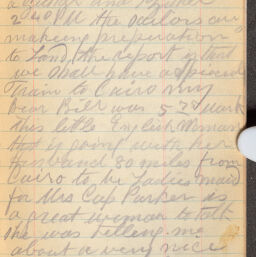 a                and
2.40 PM the sailors are
makeing preparation
to land, the report is that
we shall have a special
Train to Cairo my
Bear Bill was 57 Mark
this little English Woman
that is going with her
Husband 80 miles from
Cairo to be Ladies maid
for Mrs Cap Parker is
a great woman to talk
she was telling me
about a very nice